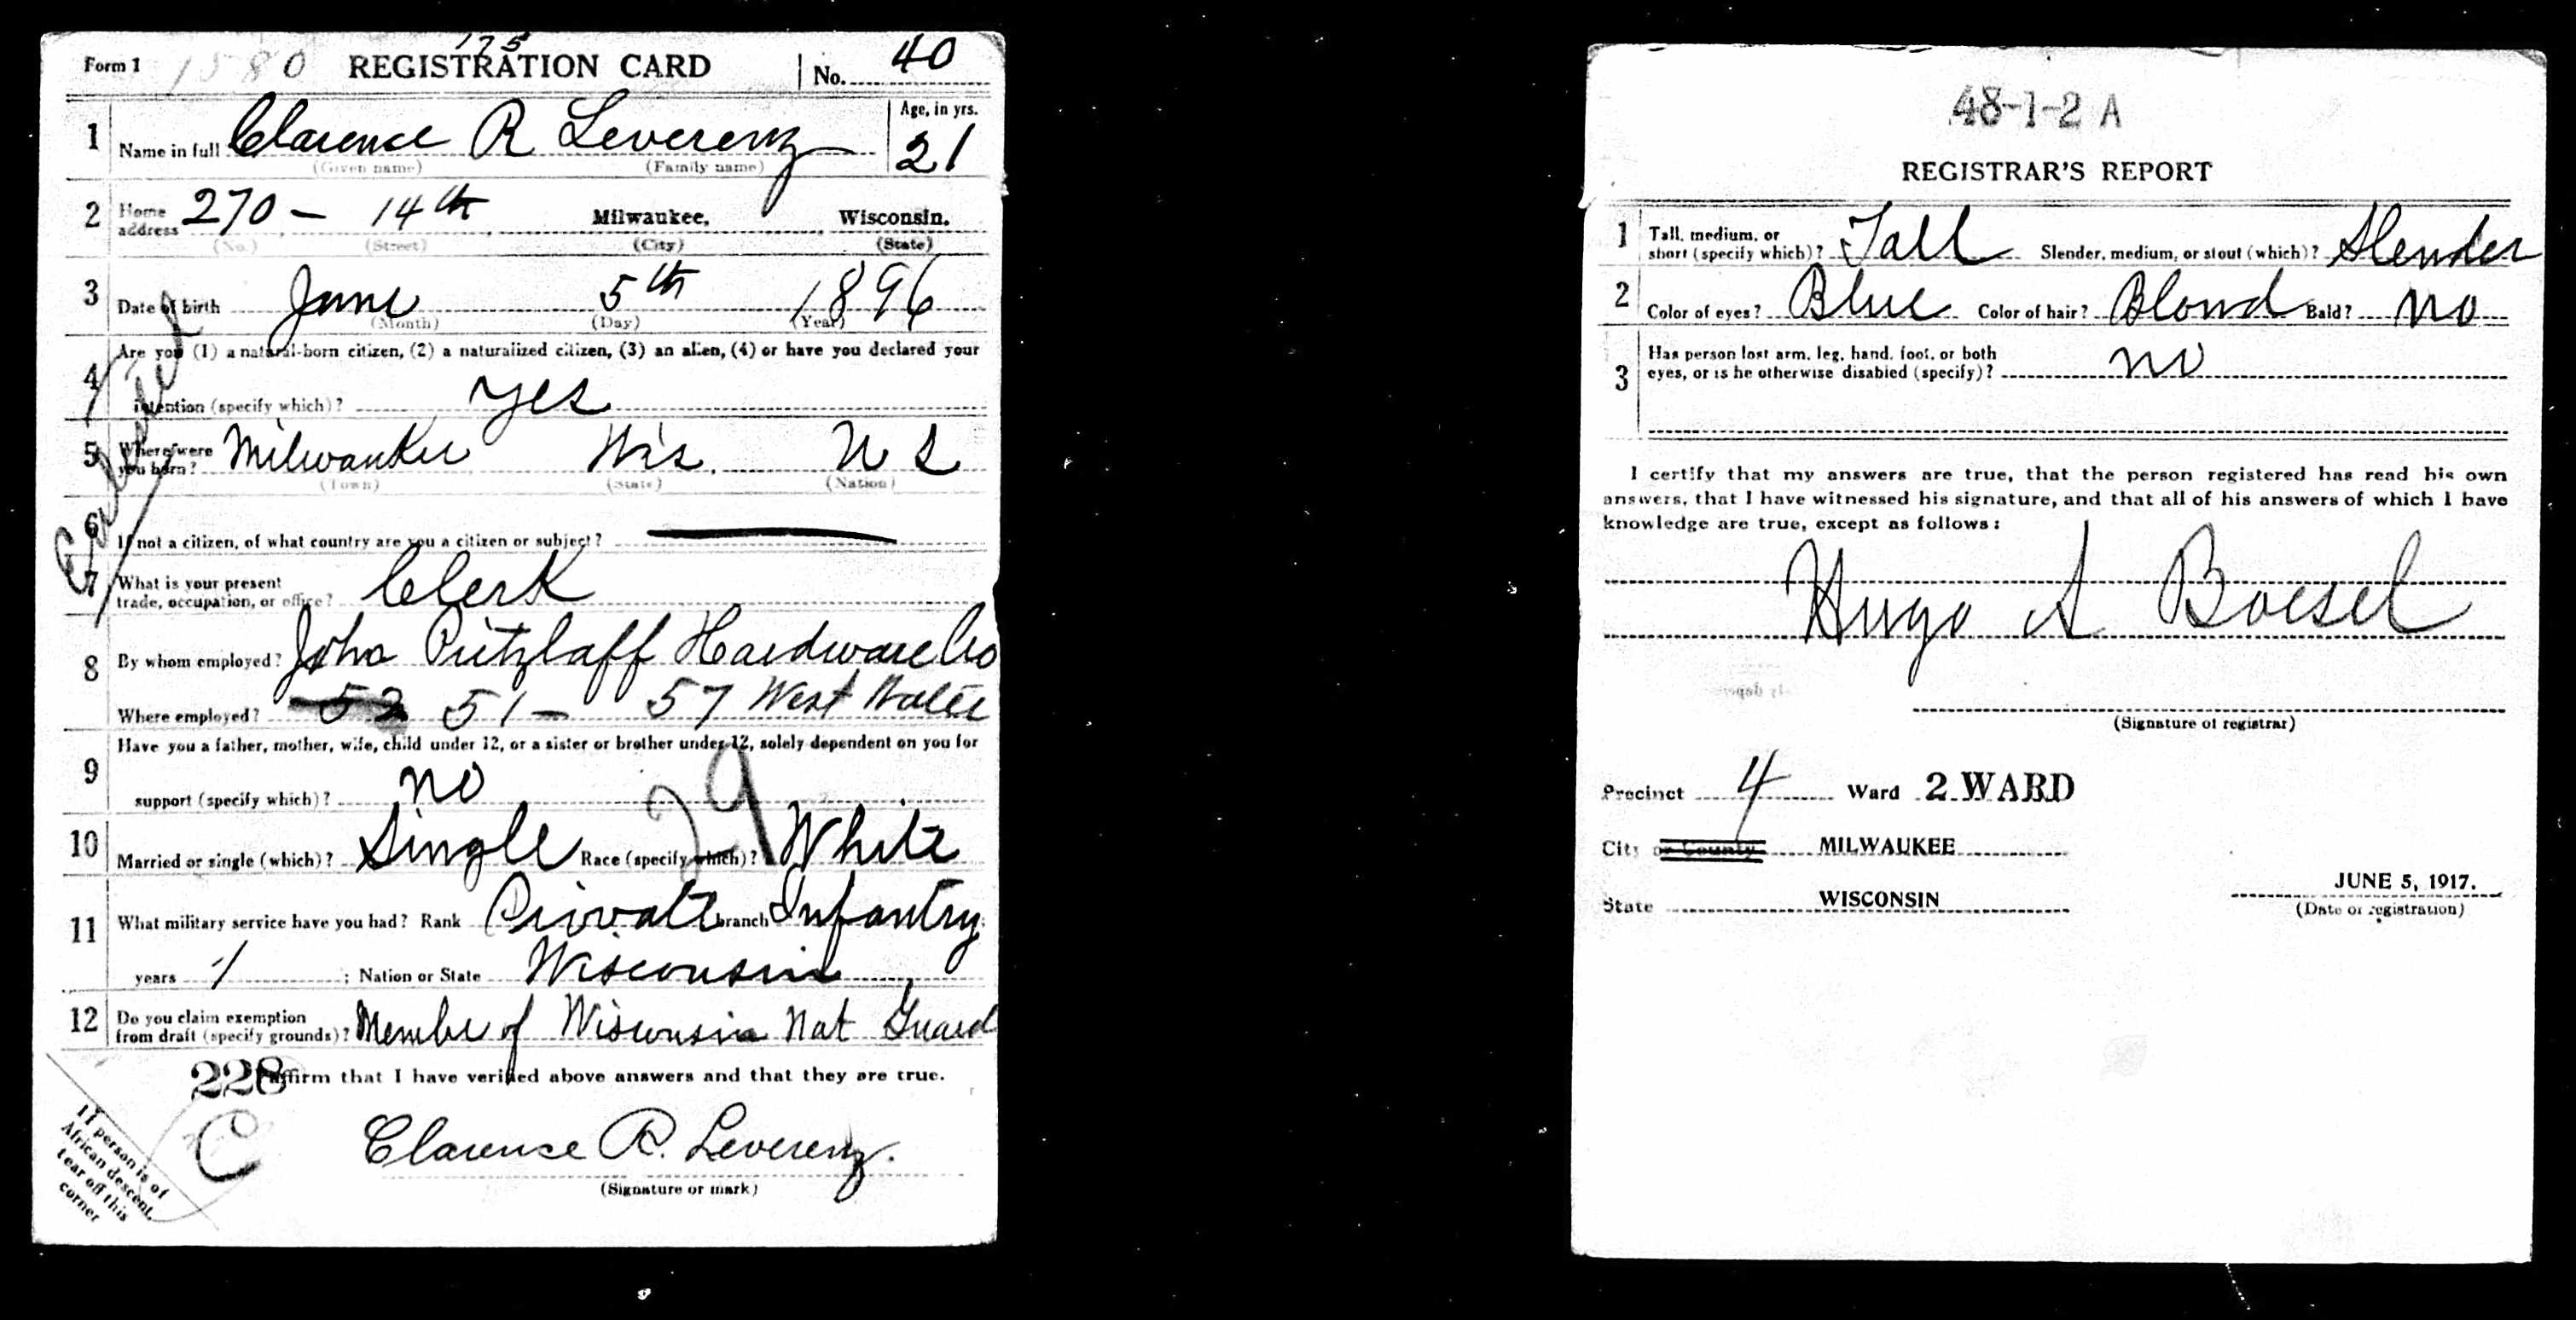 175
Form 1 1580 REGISTRATION CARD No. 40
1 Name in full Clarence R Leverenz Age, in yrs. 21
(Given name) (Family name)
2 Home address 270 - 14th Milwaukee, Wisconsin.
(No.) (Street) (City) (State)
3 Date of birth June 5th 1896
(Month) (Day) (Year)
4 Are you (1) a natural-born citizen, (2) a naturalized citizen, (3) an alien, (4) or have you declared your
intention (specify which)? yes
5 Where were you born? Milwaukee Wis. U S
(Town) (State) (Nation)
6 If not a citizen, of what country are you a citizen or subject?
7 What is your present trade, occupation, or office? Clerk
8 By whom employed? John Pritzlaff Hardware Co
Where employed? 52 51 - 57 West Water
9 Have you a father, mother, wife, child under 12, or a sister or brother under 12, solely dependent on you for
support (specify which)? no
29
10 Married or single (which)? Single Race (specify which)? White
11 What military service have you had? Rank Private branch Infantry
years 1 ; Nation or State Wisconsin
12 Do you claim exemption from draft (specify grounds)? Membr of Wisconsin Nat Guard
228
I affirm that I have verified above answers and that they are true.
C
Clarence R. Leverenz.
(Signature or mark)
If person is of
African descent,
tear off this
corner
48-1-2 A
REGISTRAR'S REPORT
1 Tall, medium, or short (specify which)? Tall Slender, medium, or stout (which)? Slender
2 Color of eyes? Blue Color of hair? Blond Bald? no
3 Has person lost arm, leg, hand, foot, or both
eyes, or is he otherwise disabled (specify)? no
I certify that my answers are true, that the person registered has read his own
answers, that I have witnessed his signature, and that all of his answers of which I have
knowledge are true, except as follows:
Hugo A Boesel
(Signature of registrar)
Precinct 4 Ward 2 WARD
City or County MILWAUKEE
State WISCONSIN
JUNE 5, 1917.
(Date of registration)